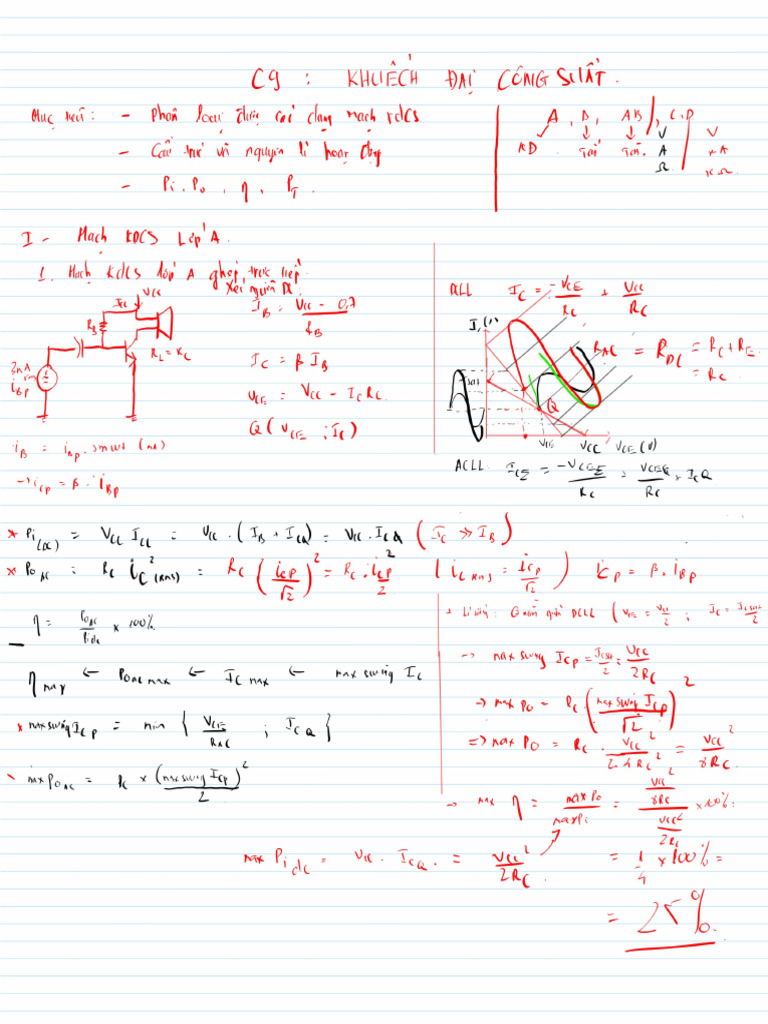 C9 : KHUẾCH ĐẠI CÔNG SUẤT.
Mục tiêu : - Phân loại được các dạng mạch KĐCS
- Cấu trúc và nguyên lí hoạt động
- Pi, Po, η, PT.
A, B, AB, C, D
KĐ
V
A
Ω
V
KΩ
I - Mạch KĐCS Lớp A.
1. Mạch KĐCS lớp A ghép trực tiếp.
Xét nguồn DC
VCC
RB
RL = RC
iBp
IB = (VCC - 0,7) / RB
IC = β IB
VCE = VCC - IC RC
Q ( VCE ; IC )
iB = iBp . sinωt (mA)
→ iCp = β . iBp
DCLL IC = -VCE/RC + VCC/RC
RAC = RDC = RC + RE
= RC
Q
VCE VCC VCE (V)
ACLL : ICE = -VCE/RC + VCEQ/RC + ICQ
* Pi(DC) = VCC ICC = VCC . ( IB + ICQ ) = VCC . ICQ ( IC ≫ IB )
* PoAC = RC iC²(RMS) = RC ( iCp / √2 )² = RC . iCp² / 2 ( iC RMS = iCp / √2 ) iCp = β . iBp
η = PoAC / Pidc × 100%
ηmax ← PoAC max ← IC max ← max swing IC
* max swing ICp = min { VCE / RAC ; ICQ }
max PoAC = RC × (max swing ICp)² / 2
+ Lí tưởng : Q nằm giữa DCLL ( VCE = VCC/2 ; IC = ICsat/2 )
→ max swing ICp = ICsat/2 = VCC/2RC
→ max Po = RC . ( max swing ICp / √2 )²
=> max Po = RC . VCC² / 2.4RC² = VCC² / 8RC
→ max η = max Po / max Pi = (VCC²/8RC) / (VCC²/2RC) × 100%
max Pi dc = VCC . ICQ = VCC² / 2RC
= 1/4 × 100% =
= 25%.